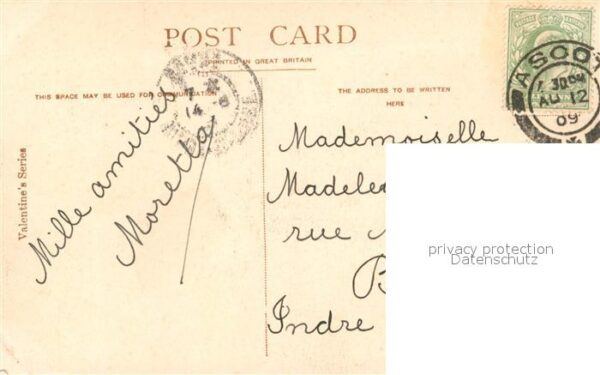 POST CARD
PRINTED IN GREAT BRITAIN
THIS SPACE MAY BE USED FOR COMMUNICATION
THE ADDRESS TO BE WRITTEN
HERE
Valentine's Series
Mille amitiés
Moretta
ASCOT
7 30 PM
AU 12
09
Mademoiselle
rue
Indre
privacy protection
Datenschutz